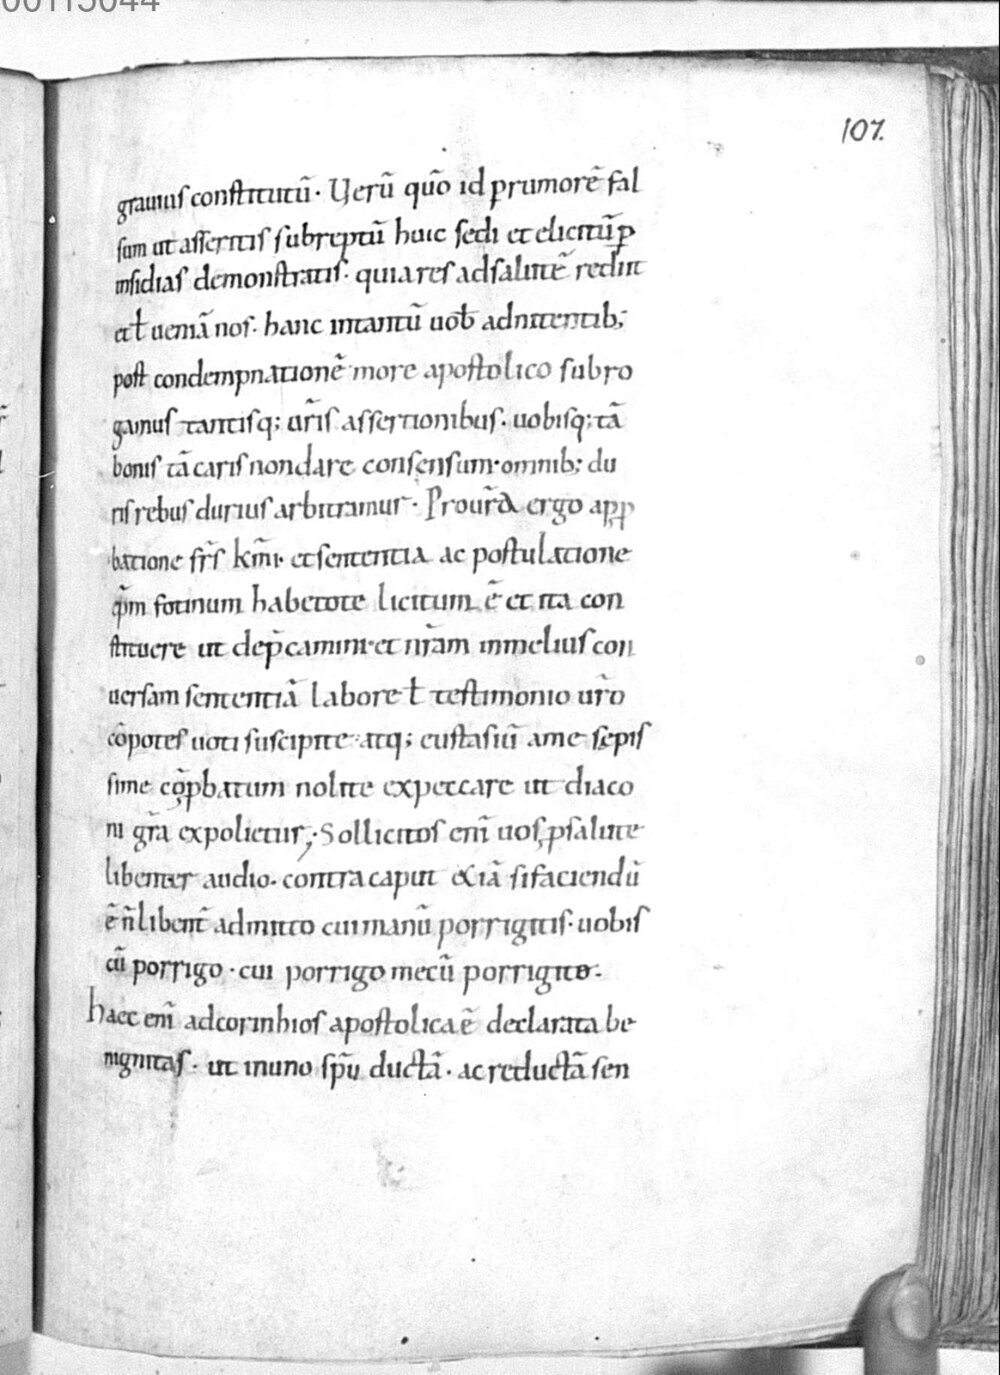 00115044
107.
grauius constitutū. Uerū quō id prumorē fal
sum ut asseritis subreptū huic sedi et elicitū ꝑ
insidias demonstratis. quia res ad salutē rediit
et ł ueniā nos. hanc intantū uob adnitentib;
post condempnationē more apostolico subro
gamus tantisq; ur̄is assertionibus. uobisq; tā
bonis tā caris non dare consensum. omnib; du
ris rebus durius arbitramur. Pro ur̄a ergo apꝓ
batione fr̄s km̄i. et sententia ac postulatione
q̄m fotinum habetote licitum ē et ita con
stituere ut dep̄camini. et nr̄am in melius con
uersam sententiā labore ł testimonio ur̄o
cōpotes uoti suscipite. atq; eustasiū a me sepis
sime cōꝓbatum nolite expectare ut diaco
ni gr̄a expolietur; Sollicitos enī uos ꝓ salute
libenter audio. contra caput & iā si faciendū
ē n̄ libent̄ admitto cui manū porrigitis. uobis
cū porrigo. cui porrigo mecū porrigite.
haec enī ad corinhios apostolica ē declarata be
nignitas. ut in uno sp̄u ductā. ac reductā sen